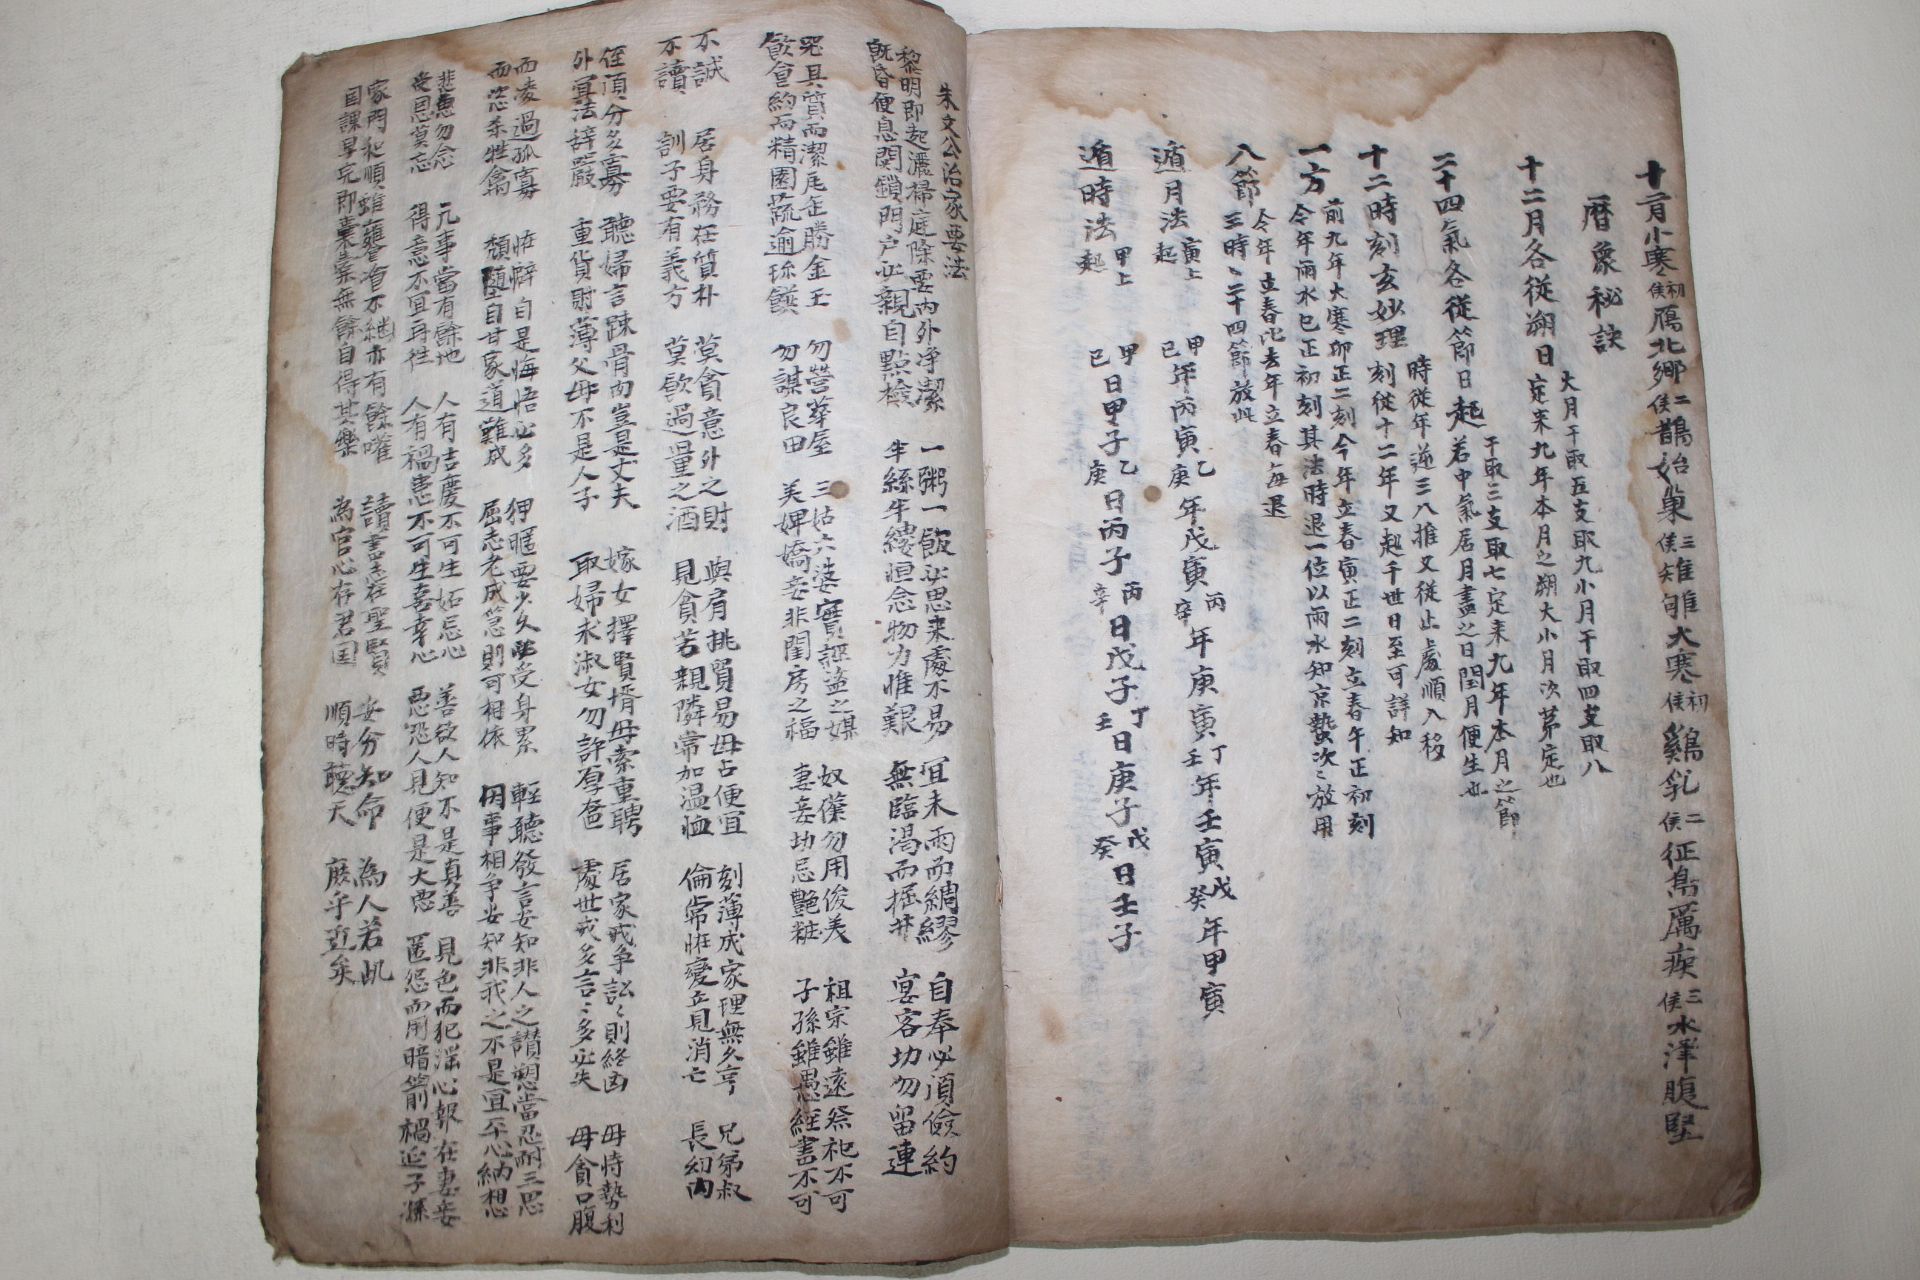 十二月小寒初候鴈北鄉二候鵲始巢三候雉雊大寒初候鷄乳二候征鳥厲疾三候水澤腹堅
曆象秘訣
大月干取五支取九小月干取四支取八
十二月各從朔日定來九年本月之朔大小月次第定也
干取三支取七定來九年本月之節
二十四氣各從節日起若中氣居月盡之日閏月便生也
時從年逆三八推又從止處順入移
十二時刻玄妙理刻從十二年又起千世日至可詳知
前九年大寒卯正二刻今年立春寅正二刻立春午正初刻
一方今年雨水巳正初刻其法時退一位以雨水知京蟄次〻放用
今年立春比去年立春每退
八節三時〻二十四節放此
遁月法寅上起 甲己年丙寅乙庚年戊寅丙辛年庚寅丁壬年壬寅戊癸年甲寅
遁時法甲上起 甲己日甲子乙庚日丙子丙辛日戊子丁壬日庚子戊癸日壬子
朱文公治家要法
黎明即起灑掃庭除要內外净潔 一粥一飯必思來處不易 宜未雨而綢繆 自奉必須儉約
既昏便息関鎖門户必親自點檢 半絲半縷恒念物力惟艱 無臨渴而掘井 宴客切勿留連
器具質而潔瓦缶勝金玉 勿營華屋 三姑六婆實誣盗之媒 奴僕勿用俊美 祖宗雖遠祭祀不可
飮食約而精園蔬逾珎饌 勿謀良田 美婢嬌妾非閨房之福 妻妾切忌艶粧 子孫雖愚經書不可
不誠 居身務在質朴 莫貪意外之財 與肩挑貿易毋占便宜 刻薄成家理無久亨 兄弟叔
不讀 訓子要有義方 莫飮過量之酒 見貧若親隣常加温恤 倫常乖變立見消亡 長幼內
侄須分多寡 聽婦言踈骨肉豈是丈夫 嫁女擇賢壻毋索重聘 居家戒争訟〻則終凶 毋恃勢利
外宜法辞嚴 重貨財薄父母不是人子 取婦求淑女勿許厚奩 處世戒多言〻多必失 毋貪口腹
而凌過孤寡 恠僻自是悔悟必多 狎暱要少久必受身累 輕聽發言安知非人之讃愬當忍耐三思
而恣杀牲禽 頹隨自甘家道難成 屈志老成急則可相依 因事相争安知非我之不是宜平心納想
悲惠勿念 凢事當有餘地 人有吉慶不可生妬忌心 善欲人知不是真善 見色而犯淫心報在妻妾
受恩莫忘 得意不宜再徃 人有禍患不可生喜幸心 悪恐人見便是大悪 匿怨而用暗箭禍迨子孫
家門和順雖饔飧不継亦有餘嚾 讀書志在聖賢 安分知命 為人若此
国課早完即囊槖無餘自得其樂 為官心存君国 順時聽天 庶乎近矣